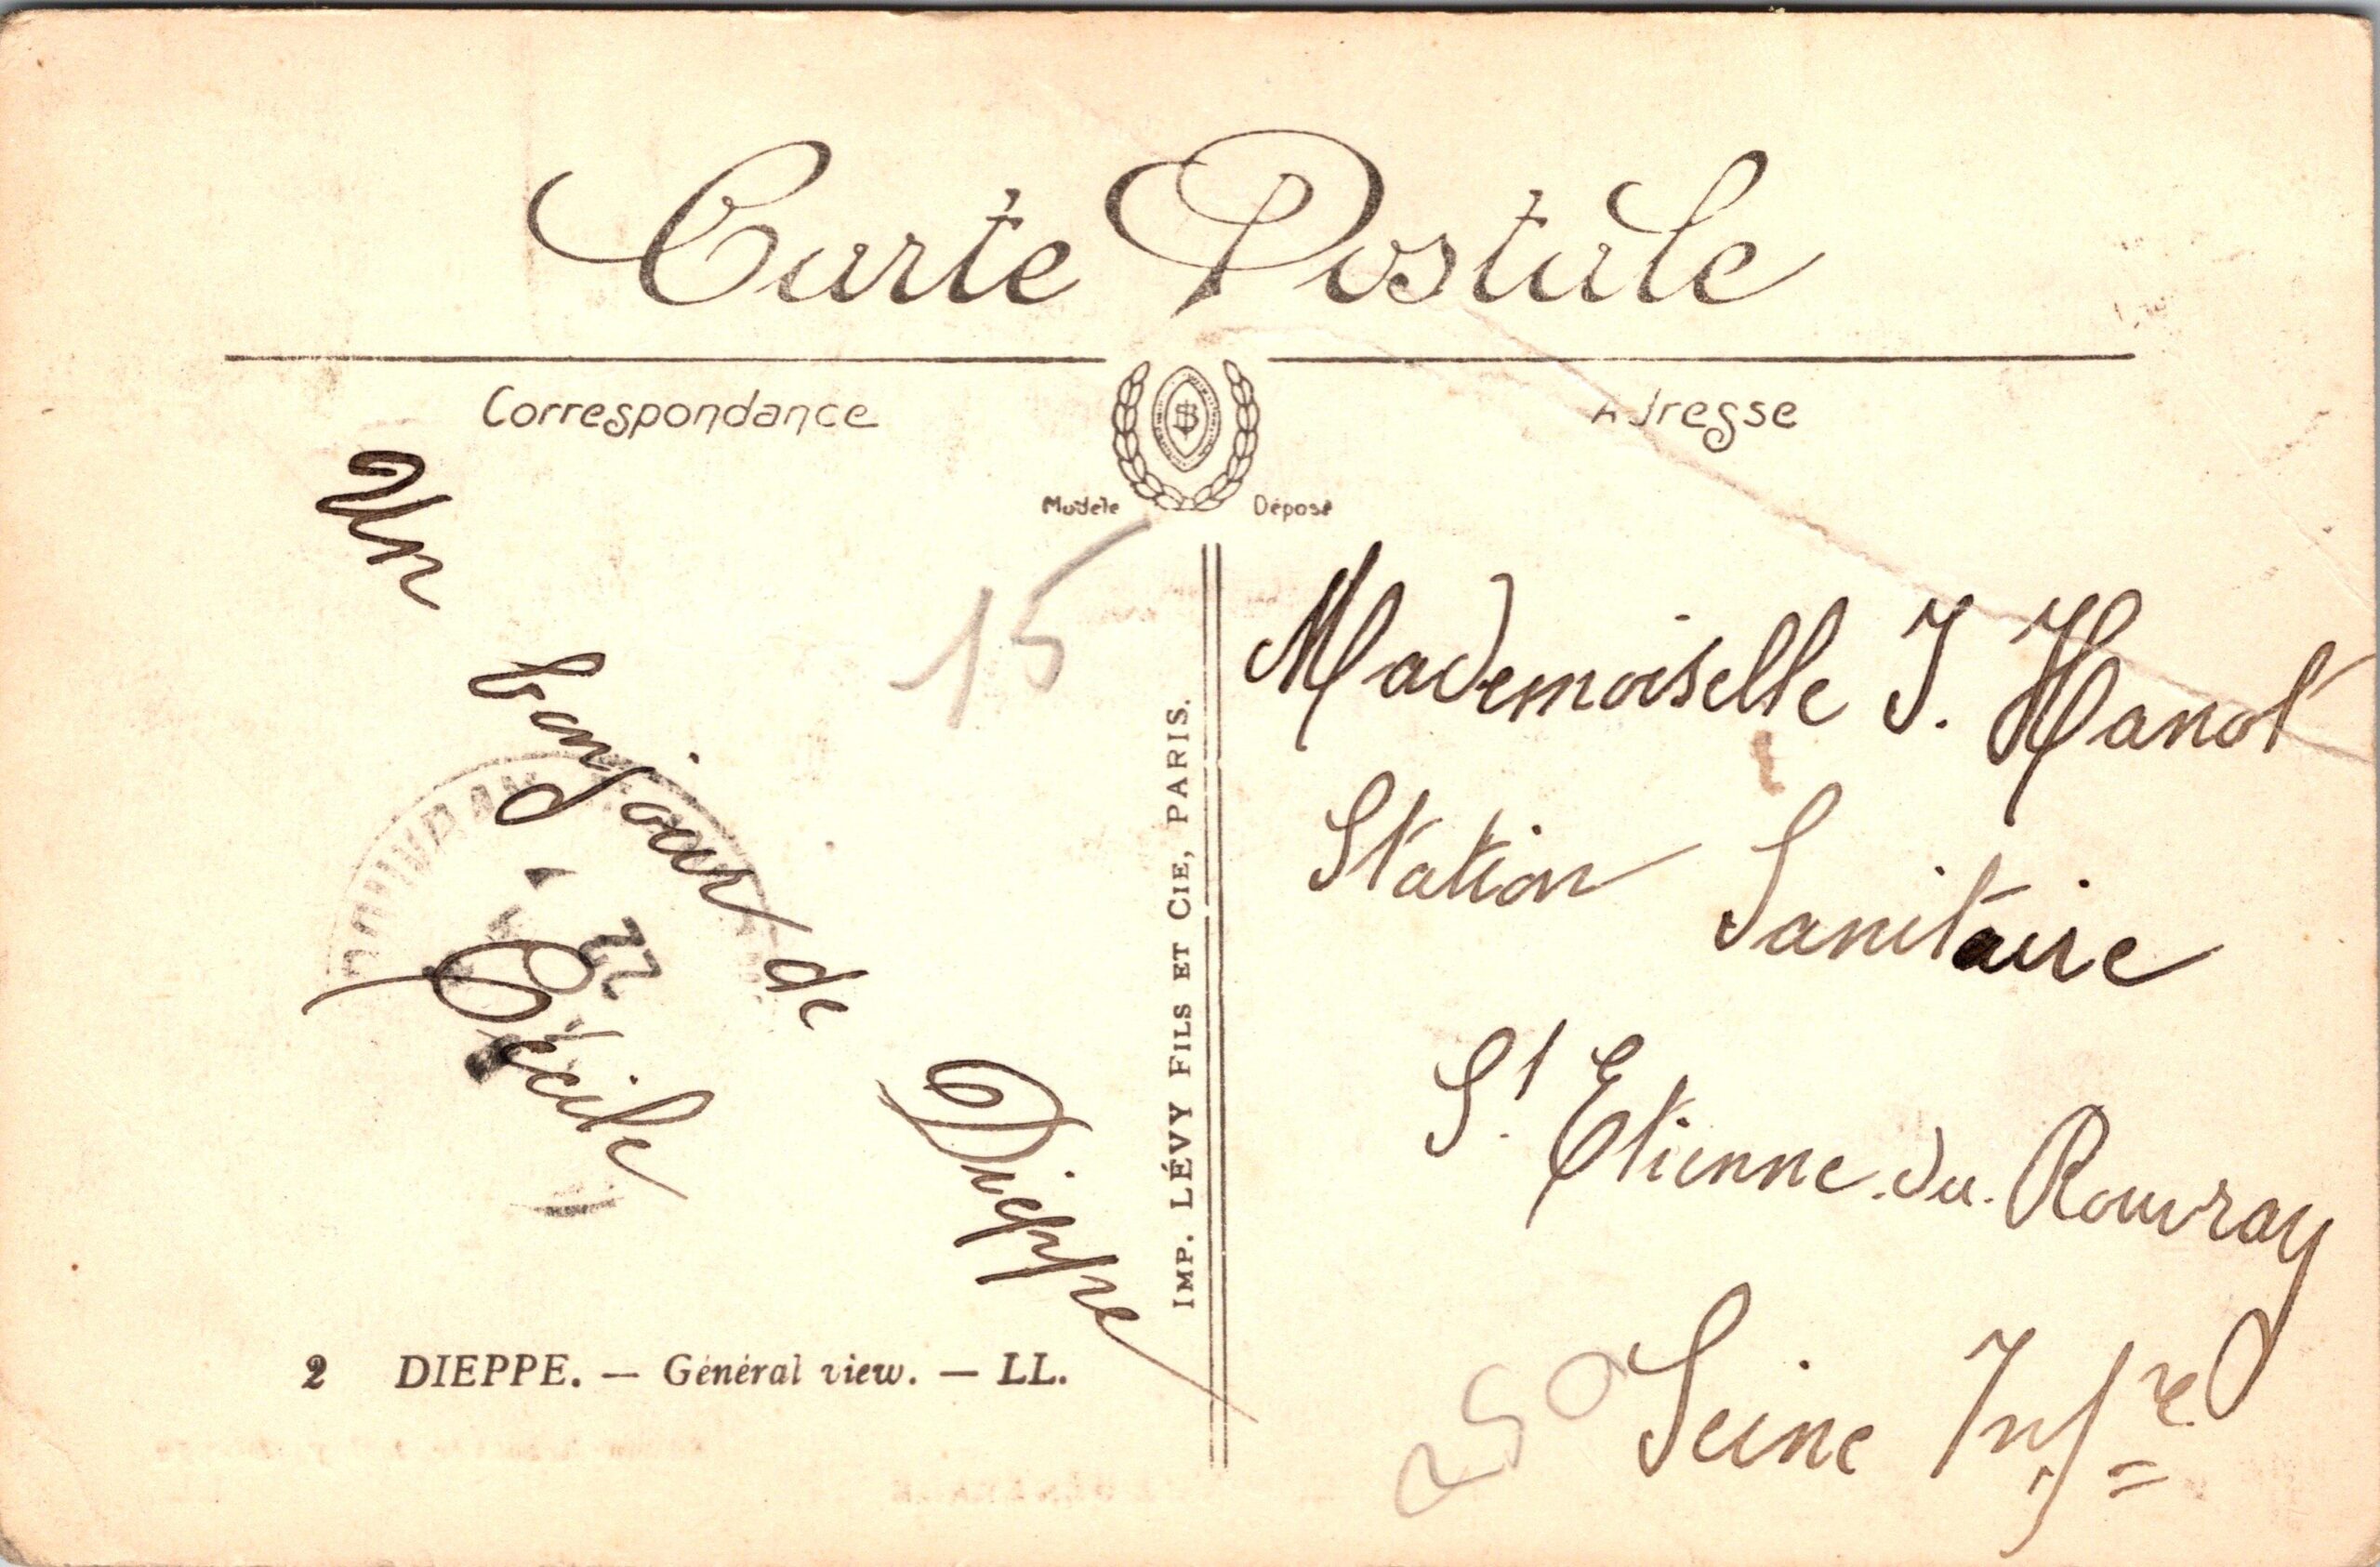 Carte Postale
Correspondance
Adresse
Modèle Déposé
15
Un bonjour de Dieppe
Cécile
22
IMP. LÉVY FILS ET CIE, PARIS.
Mademoiselle J. Hanot
Station Sanitaire
St Etienne. du. Rouvray
Seine Infre
250
2 DIEPPE. — Général view. — LL.